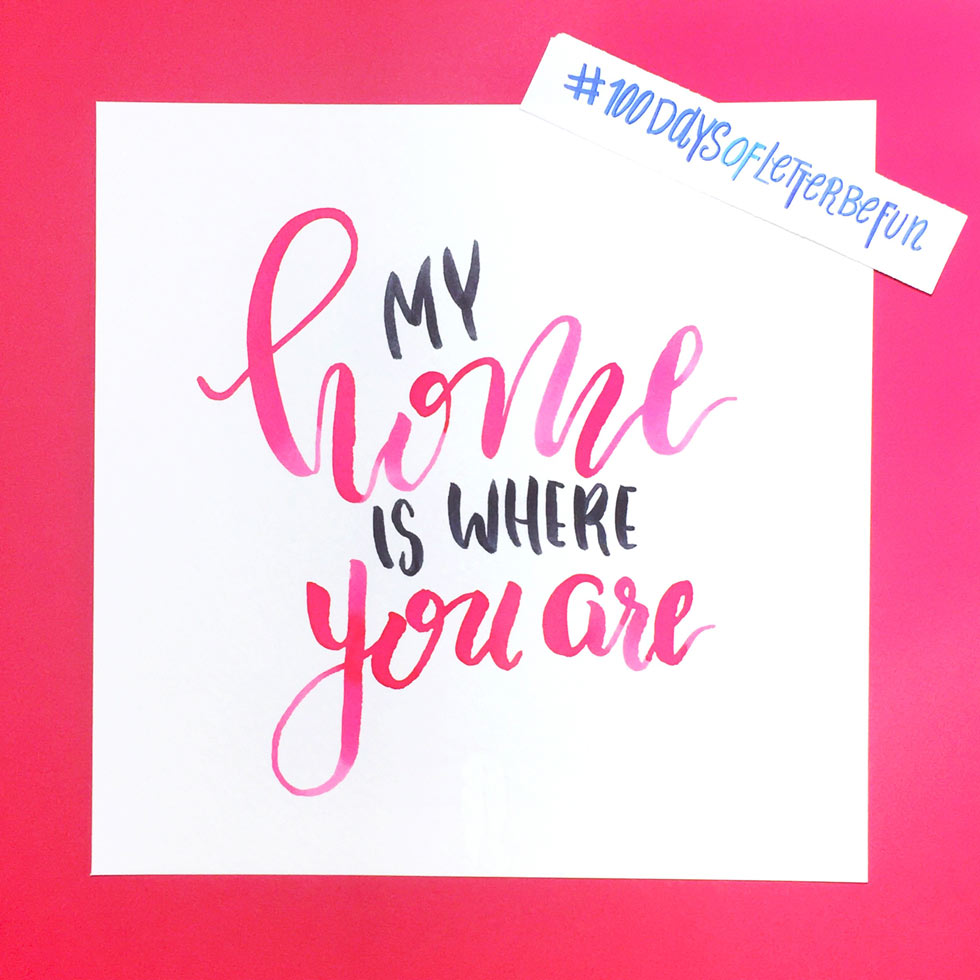 #100DaysofLetterBeFun
MY
home
IS WHERE
you are